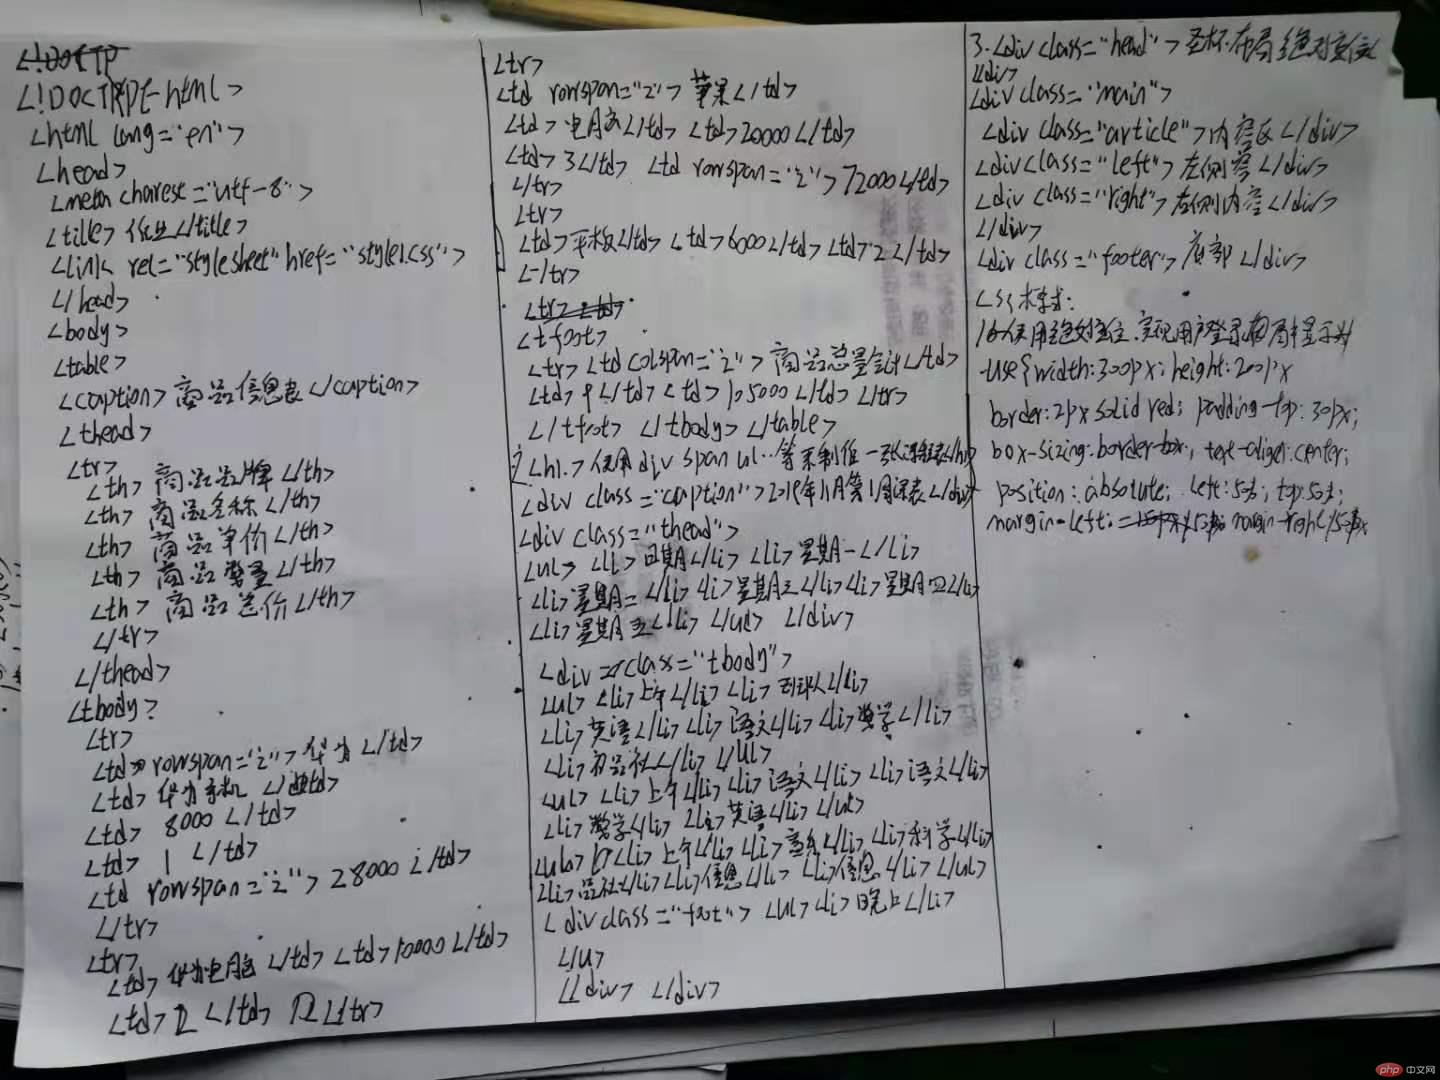 <!DOCTYPE html>
<html lang="en">
<head>
<meta charest="utf-8">
<title>作业</title>
<link rel="stylesheet" href="style1.css">
</head>
<body>
<table>
<caption>商品信息表</caption>
<thead>
<tr>
<th>商品品牌</th>
<th>商品名称</th>
<th>商品单价</th>
<th>商品数量</th>
<th>商品总价</th>
</tr>
</thead>
<tbody>
<tr>
<td rowspan="2">华为</td>
<td>华为手机</td>
<td>8000</td>
<td>1</td>
<td rowspan="2">28000</td>
</tr>
<tr>
<td>华为电脑</td><td>10000</td>
<td>2</td></tr>
<tr>
<td rowspan="2">苹果</td>
<td>电脑</td><td>20000</td>
<td>3</td> <td rowspan="2">72000</td>
</tr>
<tr>
<td>平板</td><td>6000</td><td>2</td>
</tr>
<tfoot>
<tr><td colspan="2">商品总量合计</td>
<td>9</td><td>105000</td></tr>
</tfoot></tbody></table>
2<h1>使用div span ul..等来制作一张课程表</h1>
<div class="caption">2019年11月第1周课表</div>
<div class="thead">
<ul><li>日期</li><li>星期一</li>
<li>星期二</li><li>星期三</li><li>星期四</li>
<li>星期五</li></ul></div>
<div class="tbody">
<ul><li>上午</li><li></li>
<li>英语</li><li>语文</li><li>数学</li>
<li>品社</li></ul>
<ul><li>上午</li><li>语文</li><li>语文</li>
<li>数学</li><li>英语</li></ul>
<ul><li>上午</li><li>音乐</li><li>科学</li>
<li>品社</li><li>信息</li><li>信息</li></ul>
<div class="foot"><ul><li>晚上</li>
</u>
</div></div>
3.<div class="head">圣杯布局绝对定位
<div>
<div class="main">
<div class="article">内容区</div>
<div class="left">左侧</div>
<div class="right">右侧内容</div>
</div>
<div class="footer">底部</div>
css样式:
使用绝对定位,实现用户登录框居中显示
.use{width:300px; height:200px
border:2px solid red; padding-top:30px;
box-sizing:border-box; text-aliger:center;
position: absolute; left:50%; top:50%;
margin-left: margin-right
php 中文网